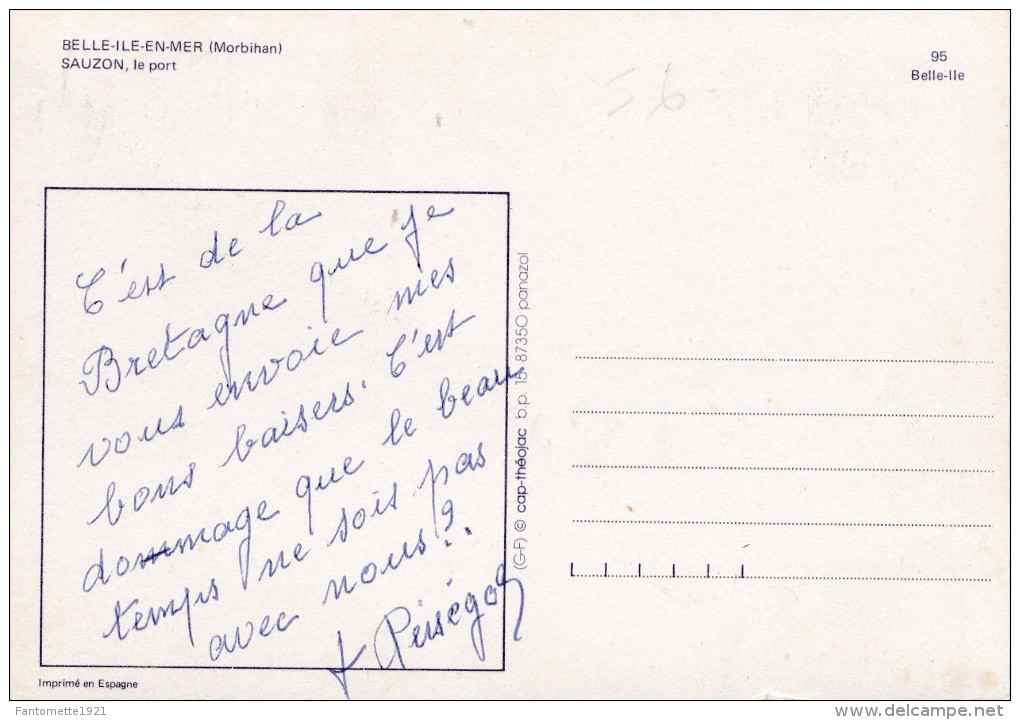 BELLE-ILE-EN-MER (Morbihan)
SAUZON, le port
95
Belle-Ile
56
C'est de la
Bretagne que je
vous envoie mes
bons baisers. C'est
dommage que le beau
temps ne sois pas
avec nous?
(G-F) © cap-théojac b.p. 15 87350 panazol
Imprimé en Espagne
Fantomette1921
delcampe.net